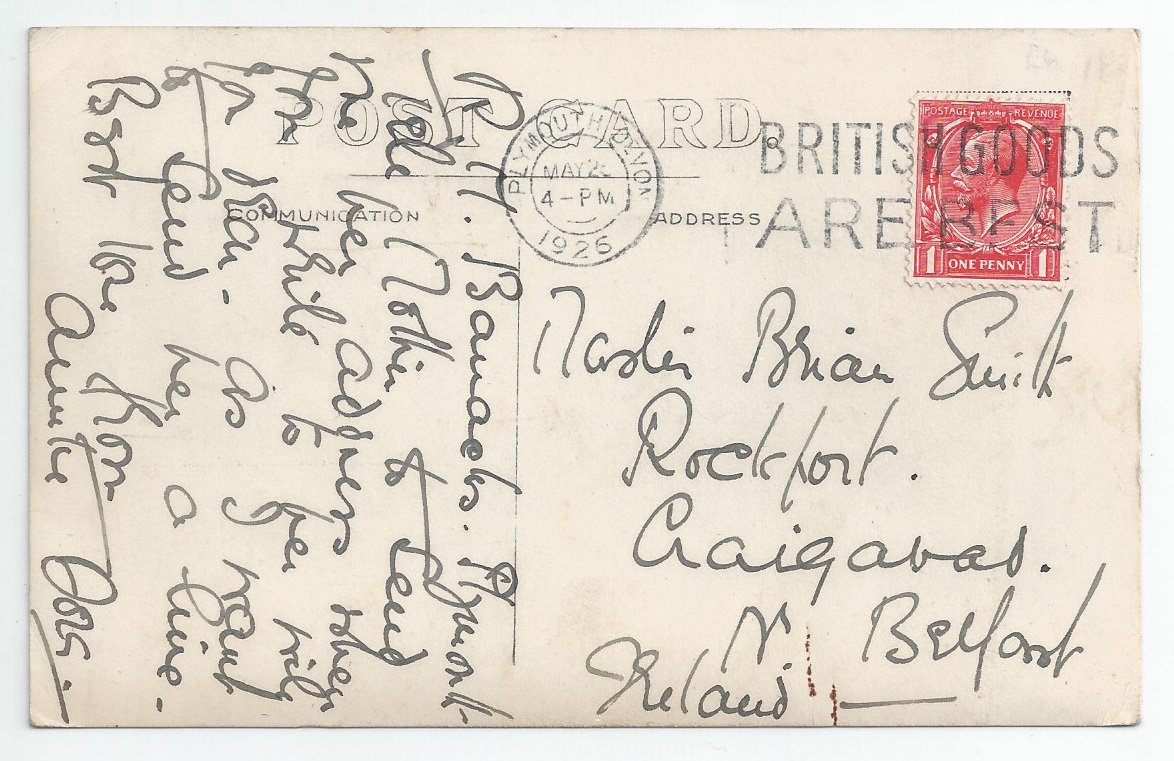 POST CARD
COMMUNICATION
ADDRESS
PLYMOUTH DEVON
MAY 2
4-PM
1926
BRITISH GOODS
ARE BEST
POSTAGE REVENUE
1 ONE PENNY 1
R.M. Barracks. Plymouth
Tell Mother to send
me her address when
you write to her will
you as I want
to send her a line.
Best love from
Auntie
Master Brian Smith
Rockport.
Craigavad.
Belfast
N. Ireland